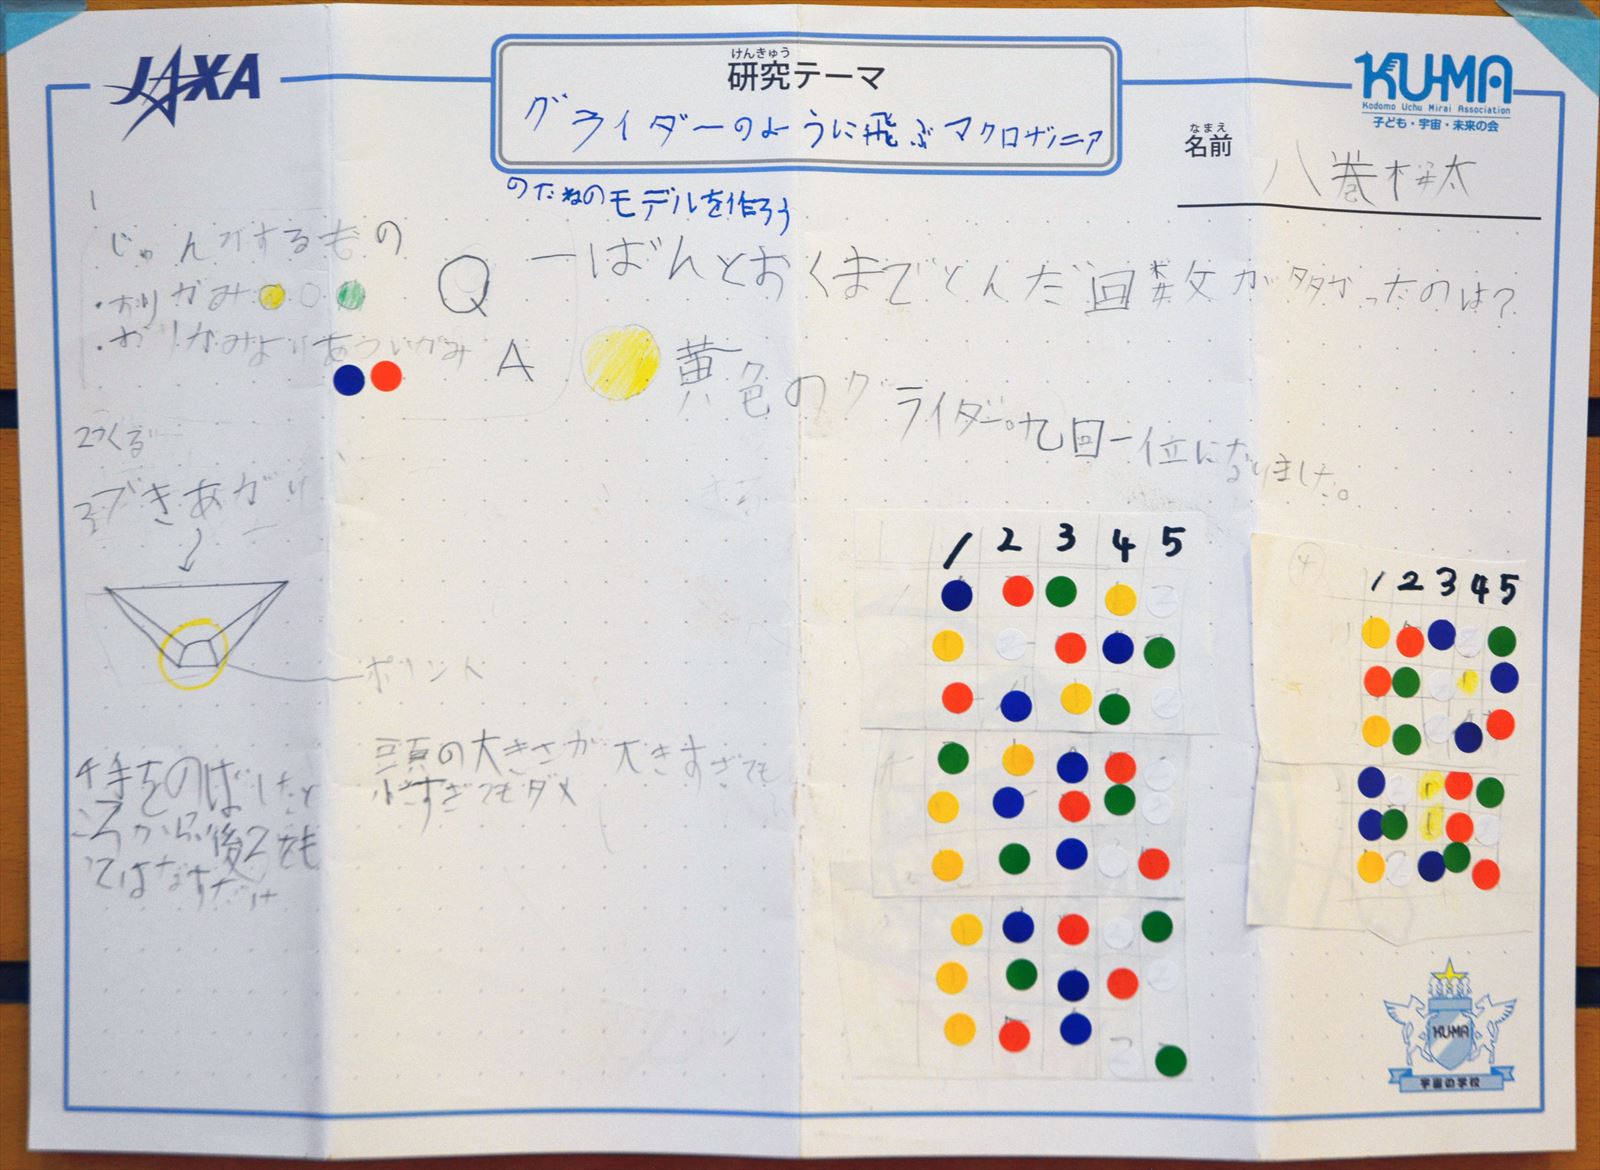 JAXA
けんきゅう
研究テーマ
グライダーのように飛ぶマクロザニア
のたねのモデルを作ろう
KU-MA
Kodomo Uchu Mirai Association
子ども・宇宙・未来の会
なまえ
名前
八巻 太
1
じゅんびするもの
・おりがみ
・おりがみよりあついがみ
2つくる
3できあがり
ポイント
4手をのばしたと
ころから後ろをも
ってはなすだけ
頭の大きさが大きすぎても
小すぎてもダメ
Q 一ばんとおくまでとんだ回数が多かったのは?
A 黄色のグライダー。九回一位になりました。
1 2 3 4 5
④
1 2 3 4 5
KUMA
宇宙の学校